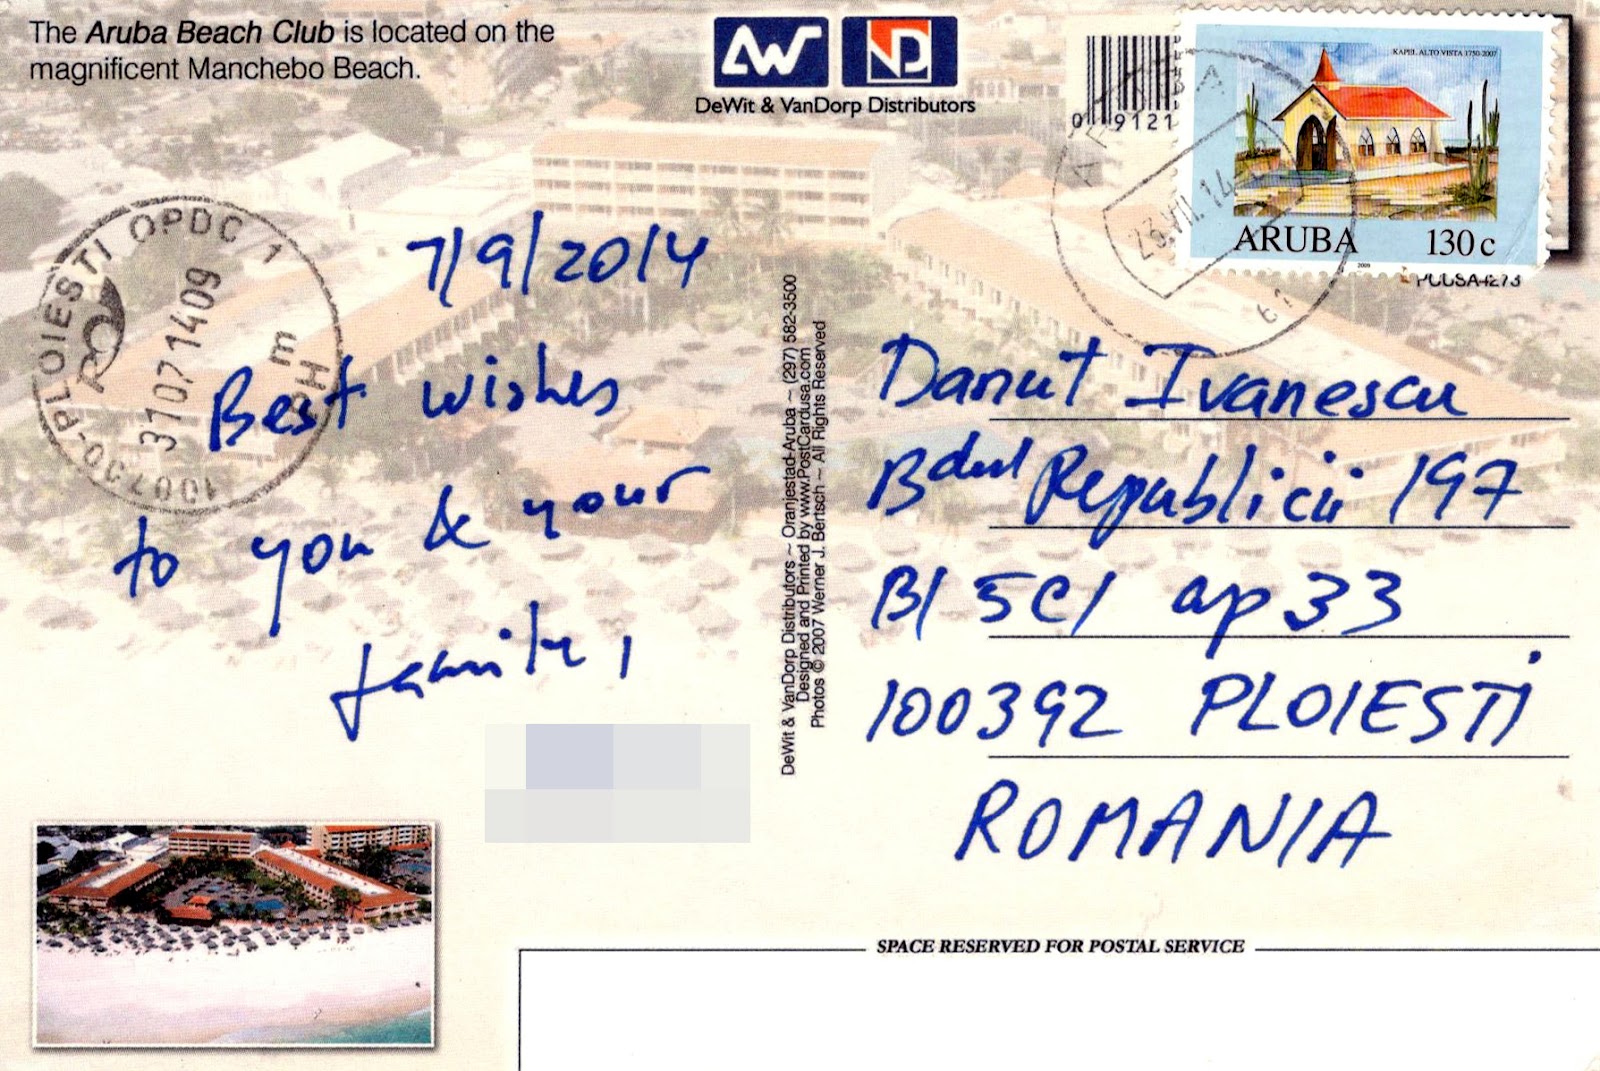 The Aruba Beach Club is located on the
magnificent Manchebo Beach.
DeWit & VanDorp Distributors
0 09121
KAPEL ALTO VISTA 1750-2007
ARUBA 130c
2009
ARUBA
23.VII.14
PLOIESTI OPDC 1
31071409
100730
7/9/2014
Best wishes
to you & your
family,
DeWit & VanDorp Distributors ~ Oranjestad-Aruba ~ (297) 582-3500
Designed and Printed by www.PostCardusa.com
Photos © 2007 Werner J. Bertsch ~ All Rights Reserved
Danut Ivanescu
Bdul Republicii 197
Bl 5C1 ap 33
100392 PLOIESTI
ROMANIA
SPACE RESERVED FOR POSTAL SERVICE